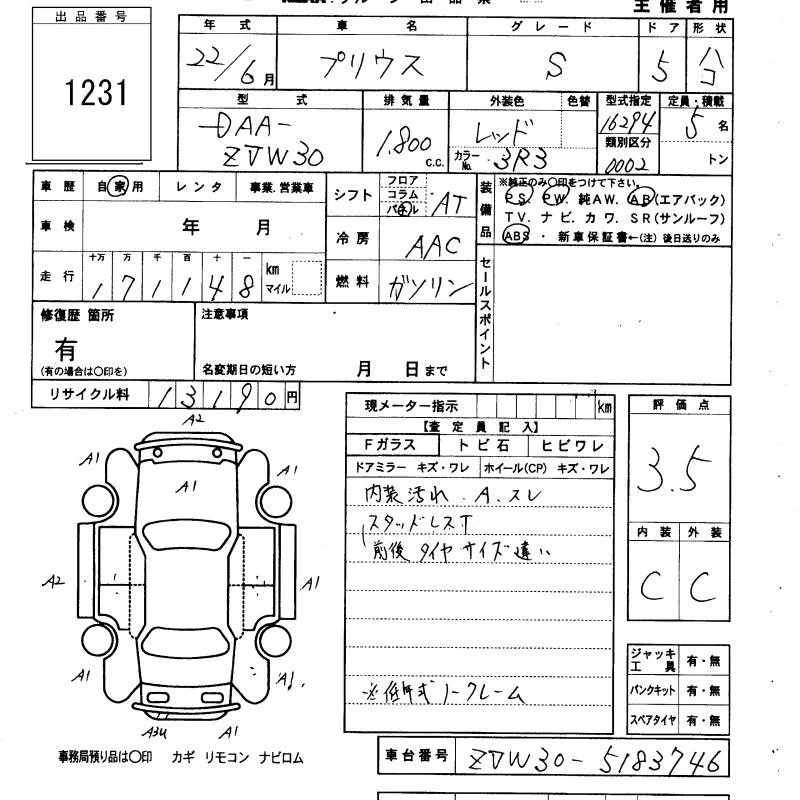 出品番号
1231
年式
22/6月
車名
プリウス
グレード
S
ドア
5
形状
ハコ
型式
DAA-
ZVW30
排気量
1.800 c.c.
外装色
レッド
色替
カラーNo. 3R3
型式指定
16294
類別区分
0002
定員・積載
5名
トン
車歴 自家用 レンタ 事業.営業車
車検 年 月
走行
十万 万 千 百 十 一
171148 km
マイル
シフト
フロア
コラム
パネル
AT
冷房 AAC
燃料 ガソリン
装備品
※純正のみ〇印をつけて下さい。
PS. PW. 純AW. AB(エアバック)
TV. ナビ. カワ. SR(サンルーフ)
ABS ・ 新車保証書←(注) 後日送りのみ
セールスポイント
修復歴 箇所
有
(有の場合は〇印を)
注意事項
名変期日の短い方 月 日まで
リサイクル料 13190円
現メーター指示 km
【査定員記入】
Fガラス トビ石 ヒビワレ
ドアミラー キズ・ワレ ホイール(CP) キズ・ワレ
内装汚れ.A.スレ
スタッドレスT
前後タイヤサイズ違い
※低年式ノークレーム
評価点
3.5
内装 外装
C C
ジャッキ工具 有・無
パンクキット 有・無
スペアタイヤ 有・無
A2
A1
A1
A1
A2
A1
A1
A1
A3U
A1
事務局預り品は〇印 カギ リモコン ナビロム
車台番号 ZVW30-5183746